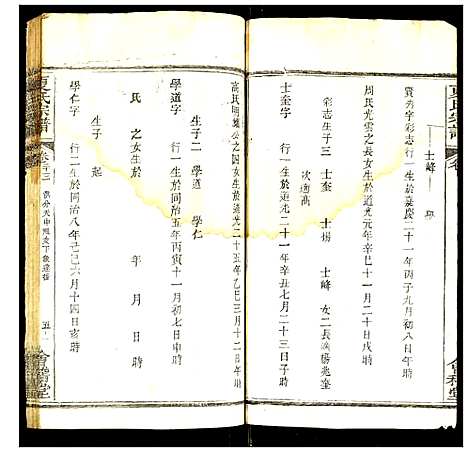 夏氏宗譜
士峰
寶秀字彩志行一生於嘉慶二十一年丙子九月初八日午時
周氏光雲之長女生於道光元年辛巳十一月二十日午時
彩志生子三 士奎 士揚 士峰 女二長適楊兆奎
次適高
士奎字 行一生於道光二十一年辛丑七月二十三日子時
高氏明 公之四女生於道光二十五年乙巳三月十二日午時
生子二 學道 學仁
學道字 行一生於同治五年丙寅十一月初七日申時
氏 之女生於 年 月 日 時
生子 起
學仁字 行二生於同治八年己巳六月十四日亥時
夏氏宗譜
卷三
五
會稽堂